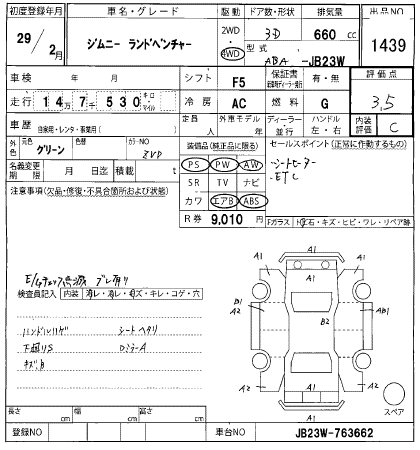 初度登録年月 車名・グレード 駆動 ドア数・形状 排気量 出品NO
29/2月 ジムニー ランドベンチャー 2WD・4WD 3D 660cc 1439
型式 ABA-JB23W
車検 年 月 シフト F5 保証書 有・無 評価点
走行 14万7千530 キロ・マイル 冷房 AC 燃料 G 3,5
車歴 自家用・レンタ・事業用( ) 定員 人 外車モデル 年 ディーラー・並行 ハンドル 左・右 内装評価 C
外色 元色 グリーン 色替 カラーNO ZVD
装備品(純正品に限る) セールスポイント(正常に作動するもの)
名義変更期限 月 日迄 積載 t
PS PW AW シートヒーター
SR TV ナビ ETC
注意事項(欠品・修復・不具合箇所および状態)
カワ エアB ABS
R券 9,010円 Fガラス 飛石・キズ・ヒビ・ワレ・リペア跡
検査員記入 内装 スレ・キレ・コゲ・穴
ハンドルハゲ シートヘタリ
下廻りS DミラーA
A1
A1 A1
B1 A2 B2 AB1 A2
A2 A2
A1
スペア
長さ cm 幅 cm 高さ cm
登録NO 車台NO JB23W-763662